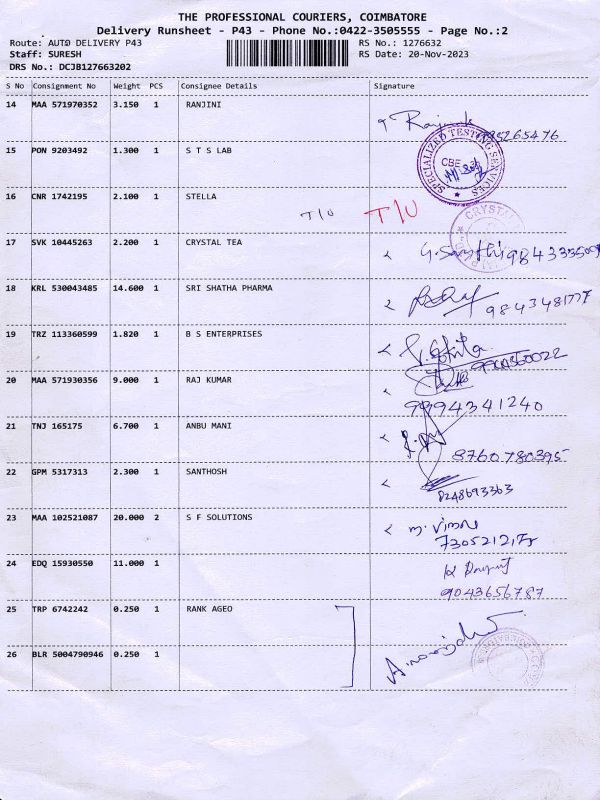 THE PROFESSIONAL COURIERS, COIMBATORE
Delivery Runsheet - P43 - Phone No.:0422-3505555 - Page No.:2
Route: AUTO DELIVERY P43 RS No.: 1276632
Staff: SURESH RS Date: 20-Nov-2023
DRS No.: DCJB127663202
S No Consignment No Weight PCS Consignee Details Signature
14 MAA 571970352 3.150 1 RANJINI
15 PON 9203492 1.300 1 S T S LAB
SPECIALIZED TESTING SERVICES
CBE
16 CNR 1742195 2.100 1 STELLA
T/U T/U
CRYSTAL
17 SVK 10445263 2.200 1 CRYSTAL TEA
18 KRL 530043485 14.600 1 SRI SHATHA PHARMA
19 TRZ 113360599 1.820 1 B S ENTERPRISES
20 MAA 571930356 9.000 1 RAJ KUMAR
9894341240
21 TNJ 165175 6.700 1 ANBU MANI
8760780395
22 GPM 5317313 2.300 1 SANTHOSH
8248693363
23 MAA 102521087 20.000 2 S F SOLUTIONS
24 EDQ 15930550 11.000 1
9043656787
25 TRP 6742242 0.250 1 RANK AGEO
26 BLR 5004790946 0.250 1